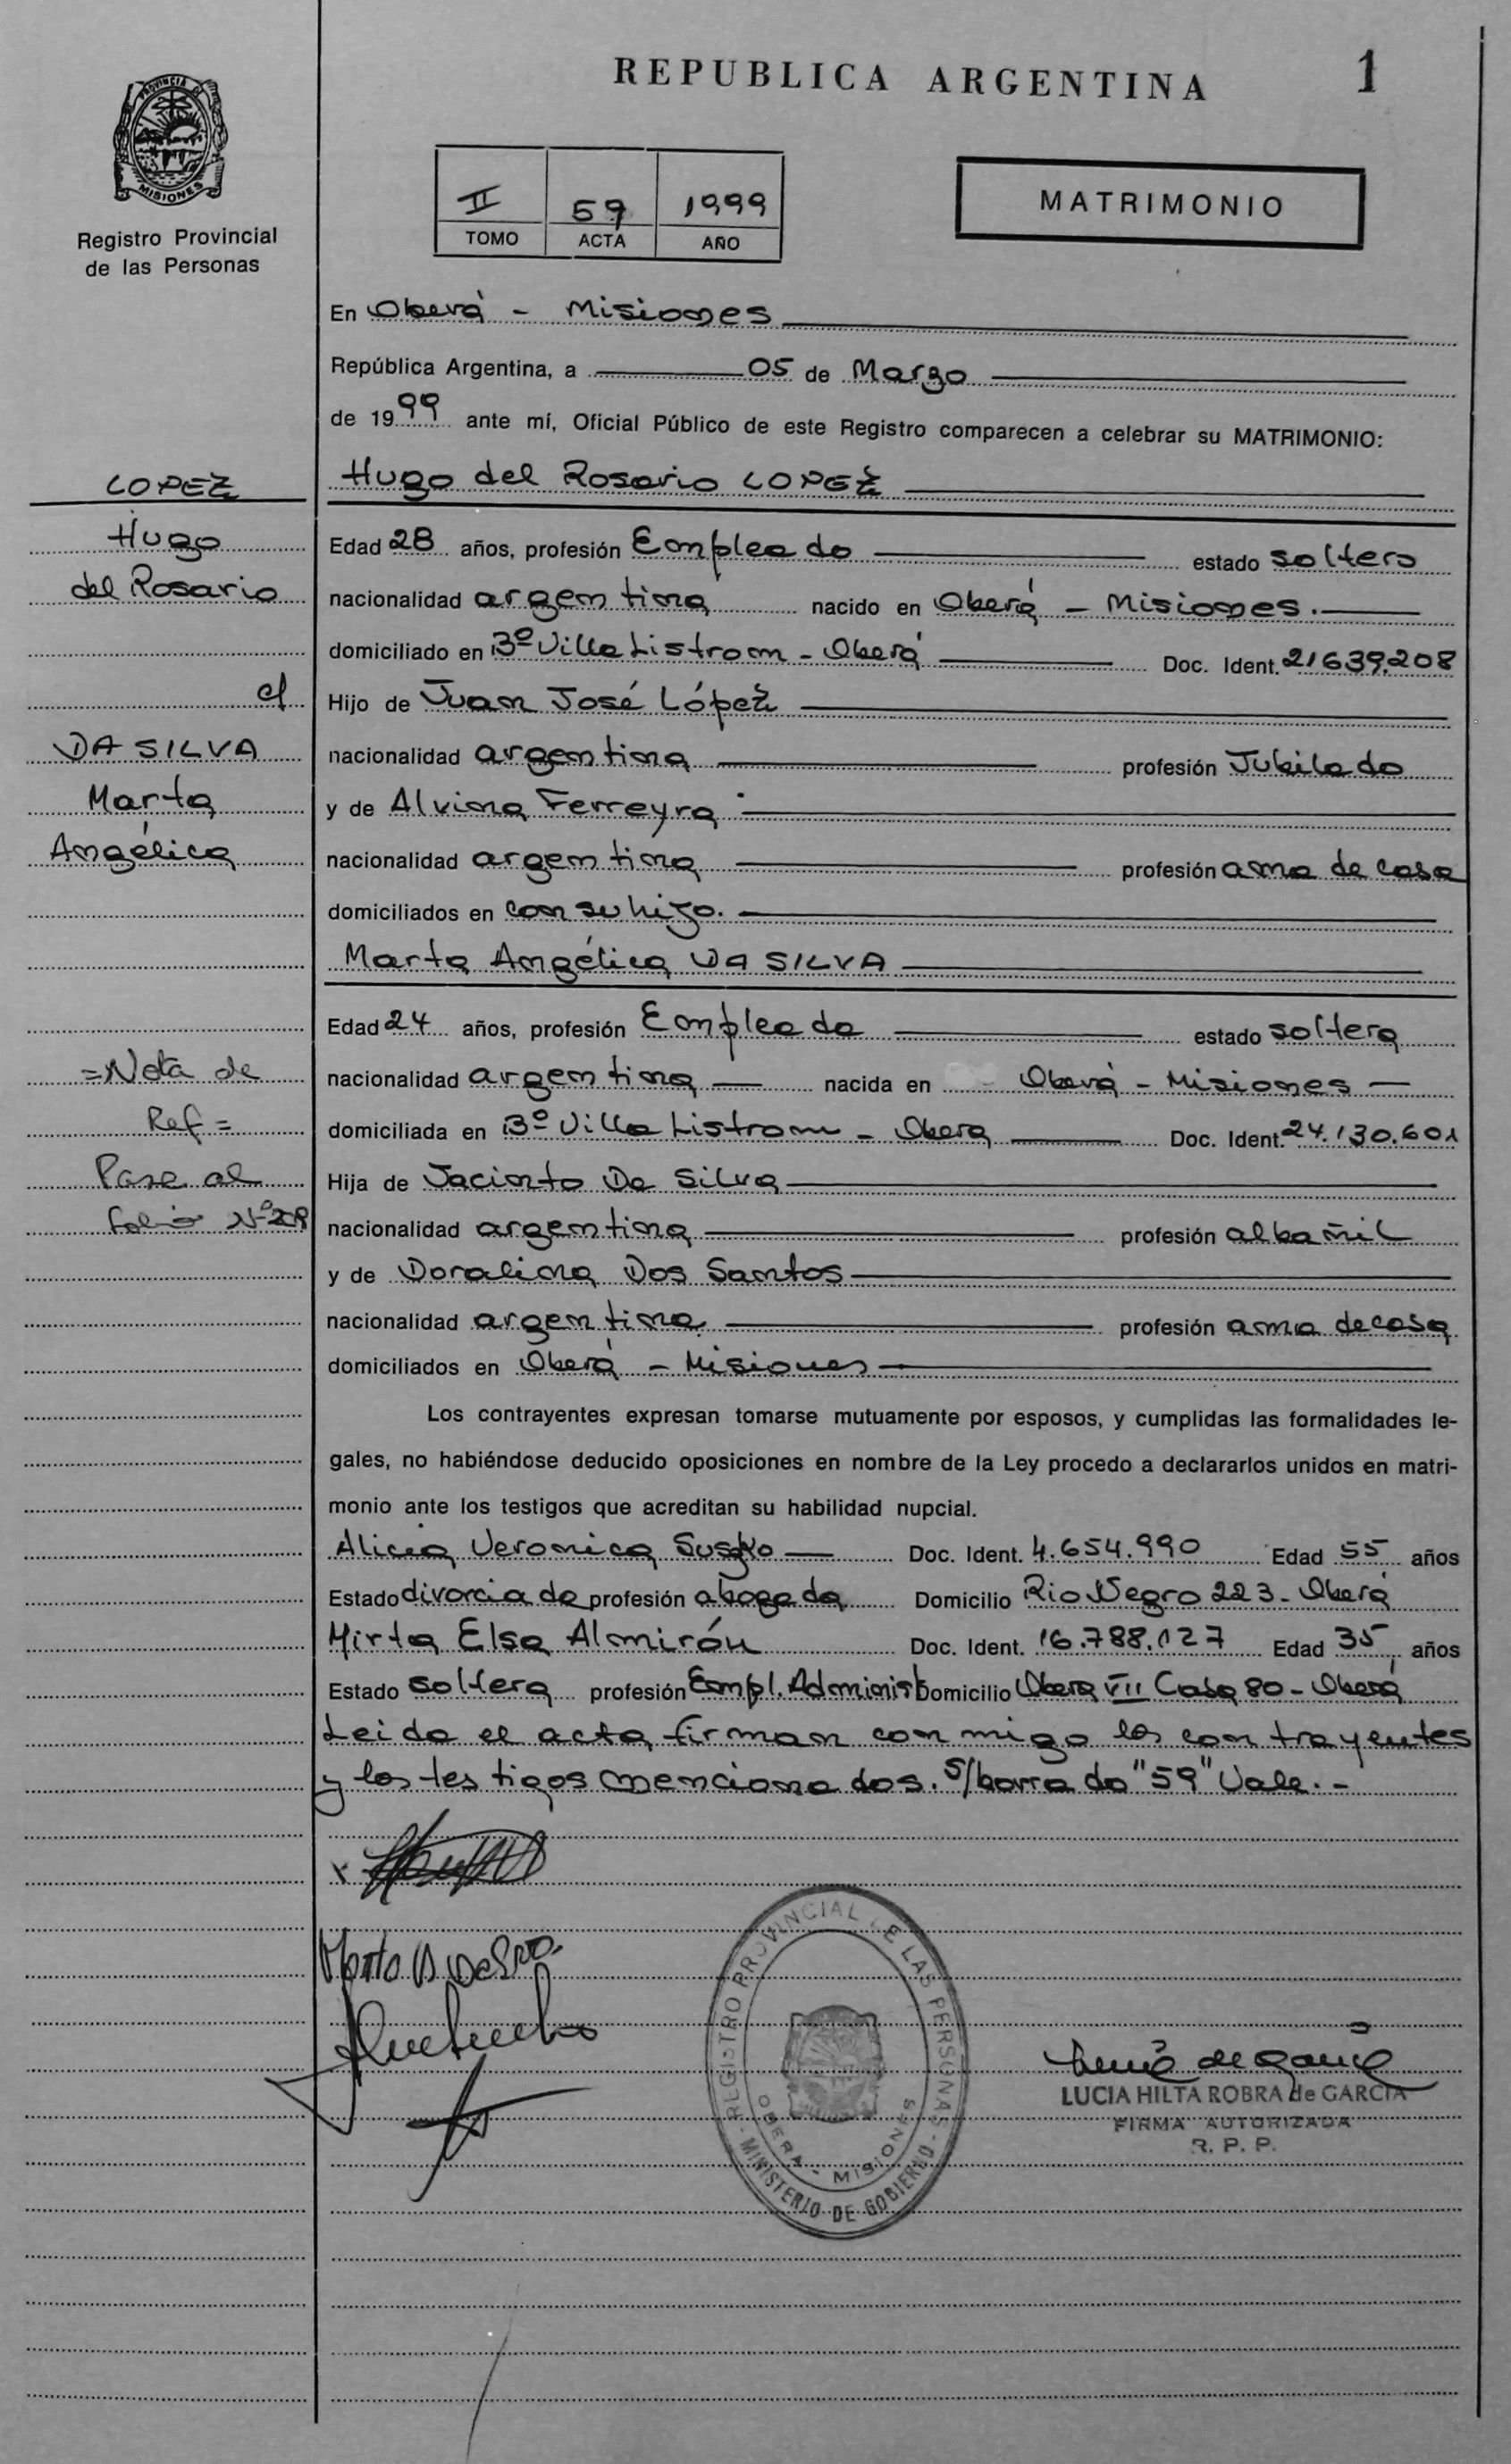 REPUBLICA ARGENTINA
1
PROVINCIA DE
MISIONES
Registro Provincial
de las Personas
II 59 1999
TOMO ACTA AÑO
MATRIMONIO
En Oberá - Misiones
República Argentina, a 05 de Marzo
de 1999 ante mí, Oficial Público de este Registro comparecen a celebrar su MATRIMONIO:
LOPEZ
Hugo
del Rosario
c/
DA SILVA
Marta
Angélica
=Nota de
Ref=
Pase al
folio Nº 209
Hugo del Rosario LOPEZ
Edad 28 años, profesión Empleado estado soltero
nacionalidad argentina nacido en Oberá - Misiones.
domiciliado en Bº Villa Listrom - Oberá Doc. Ident. 21639.208
Hijo de Juan José López
nacionalidad argentina profesión Jubilado
y de Alvina Ferreyra
nacionalidad argentina profesión ama de casa
domiciliados en con su hijo.
Marta Angélica DA SILVA
Edad 24 años, profesión Empleada estado soltera
nacionalidad argentina nacida en Oberá - Misiones
domiciliada en Bº Villa Listrom - Obera Doc. Ident. 24.130.601
Hija de Jacinto Da Silva
nacionalidad argentina profesión albañil
y de Doralina Dos Santos
nacionalidad argentina profesión ama de casa
domiciliados en Oberá - Misiones
Los contrayentes expresan tomarse mutuamente por esposos, y cumplidas las formalidades le-
gales, no habiéndose deducido oposiciones en nombre de la Ley procedo a declararlos unidos en matri-
monio ante los testigos que acreditan su habilidad nupcial.
Alicia Veronica Susko Doc. Ident. 4.654.990 Edad 55 años
Estado divorciada profesión abogada Domicilio Rio Negro 223 - Oberá
Mirta Elsa Almirón Doc. Ident. 16.788.127 Edad 35 años
Estado soltera profesión Empl. Administ Domicilio Obera VII Casa 80 - Oberá
Leida el acta, firman conmigo los contrayentes
y los testigos mencionados. S/borrado "59" Vale. -
Marta A Da Silva
REGISTRO PROVINCIAL DE LAS PERSONAS
OBERA - MISIONES
- MINISTERIO DE GOBIERNO -
LUCIA HILTA ROBRA de GARCIA
FIRMA AUTORIZADA
R. P. P.